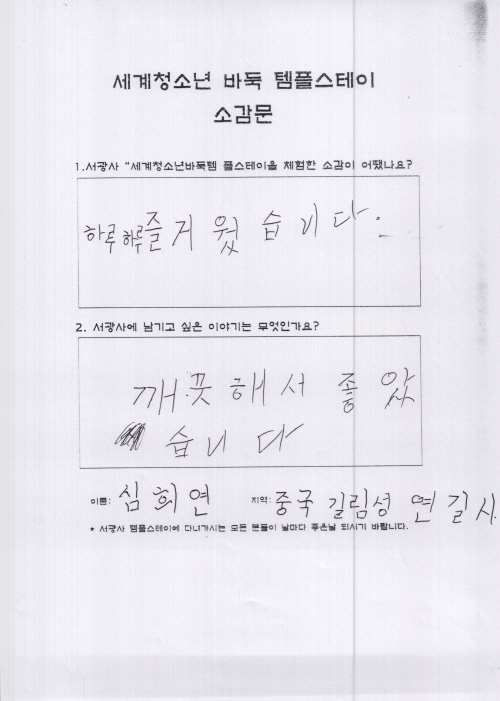 세계청소년 바둑 템플스테이
소감문
1.서광사 "세계청소년바둑템 플스테이을 체험한 소감이 어땠나요?
하루하루즐거웠습니다.
2. 서광사에 남기고 싶은 이야기는 무엇인가요?
깨끗해서 좋았
습니다
이름: 심희연 지역: 중국 길림성 연길시
* 서광사 템플스테이에 다녀가시는 모든 분들이 날마다 좋은날 되시기 바랍니다.